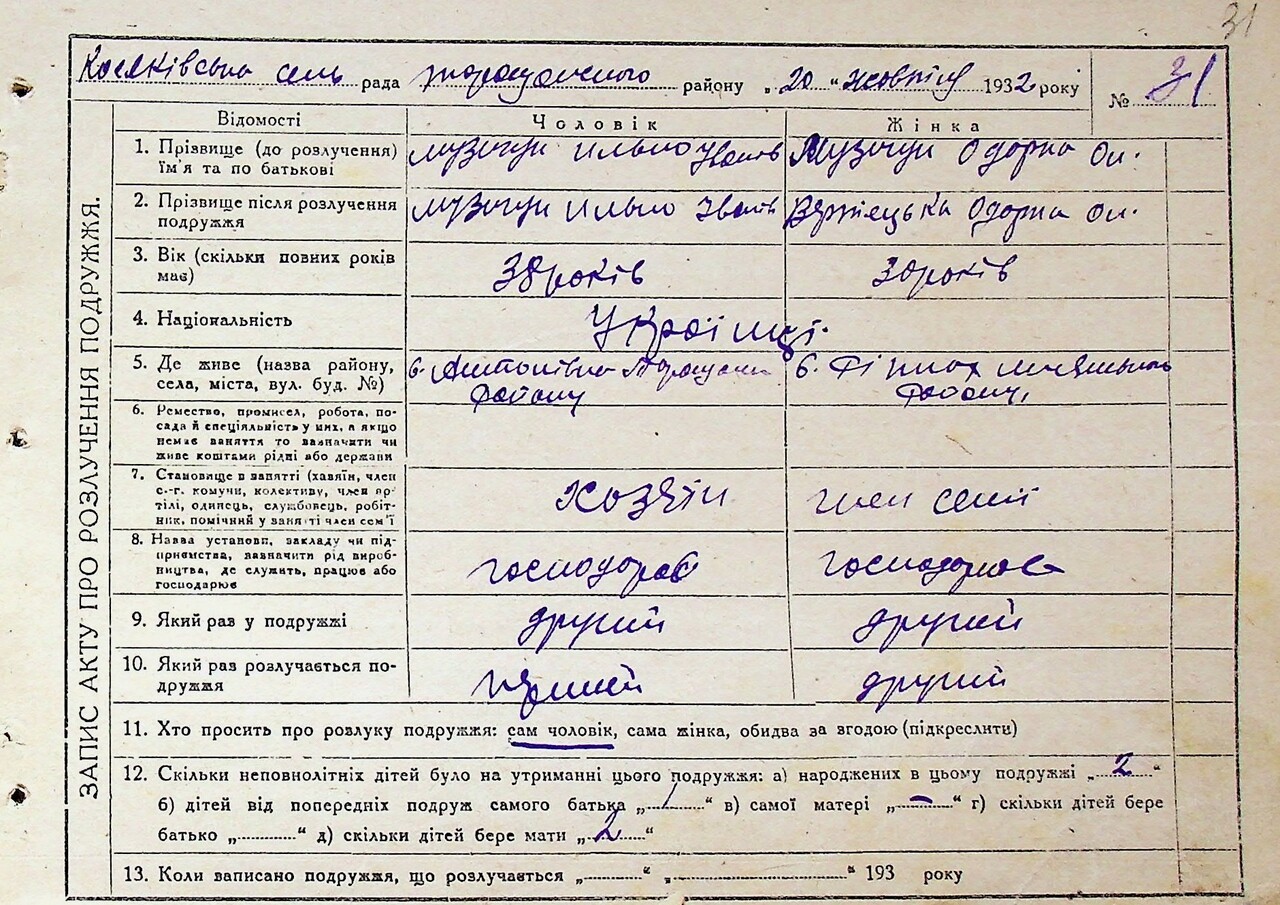 31
Косяківська сель рада таращанского району „20“ жовтня 1932 року № 31
ЗАПИС АКТУ ПРО РОЗЛУЧЕННЯ ПОДРУЖЖЯ.
Відомості Чоловік Жінка
1. Прізвище (до розлучення) музичук Илько Іванів Музичук Одарка Оп.
їм'я та по батькові
2. Прізвище після розлучення музичук Илько Іванів Одарка Оп.
подружжя
3. Вік (скільки повних років 38 років 30 років
має)
4. Національність Українці.
5. Де живе (назва району, с. Антонівка Таращан с.
села, міста, вул. буд. №) району району,
6. Ремество, промисел, робота, по-
сада й спеціяльність у них, а якщо
немає заняття то зазначити чи
живе коштами рідні або держави
7. Становище в занятті (хазяїн, член хозяін член семії
с.-г. комуни, колективу, член ар-
тілі, одинець, службовець, робіт-
ник, помічний у занятті член сем'ї
8. Назва установи, закладу чи під- господарав господарова
приємства, зазначити рід вироб-
ництва, де служить, працює або
господарює
9. Який раз у подружжі другий другий
10. Який раз розлучається по- перший другий
дружжя
11. Хто просить про розлуку подружжя: сам чоловік, сама жінка, обидва за згодою (підкреслити)
12. Скільки неповнолітніх дітей було на утриманні цього подружжя: а) народжених в цьому подружжі „2“
б) дітей від попередніх подруж самого батька „/“ в) самої матері „–“ г) скільки дітей бере
батько „..........“ д) скільки дітей бере мати „2“
13. Коли записано подружжя, що розлучається „..........“ „..........“ 193 року